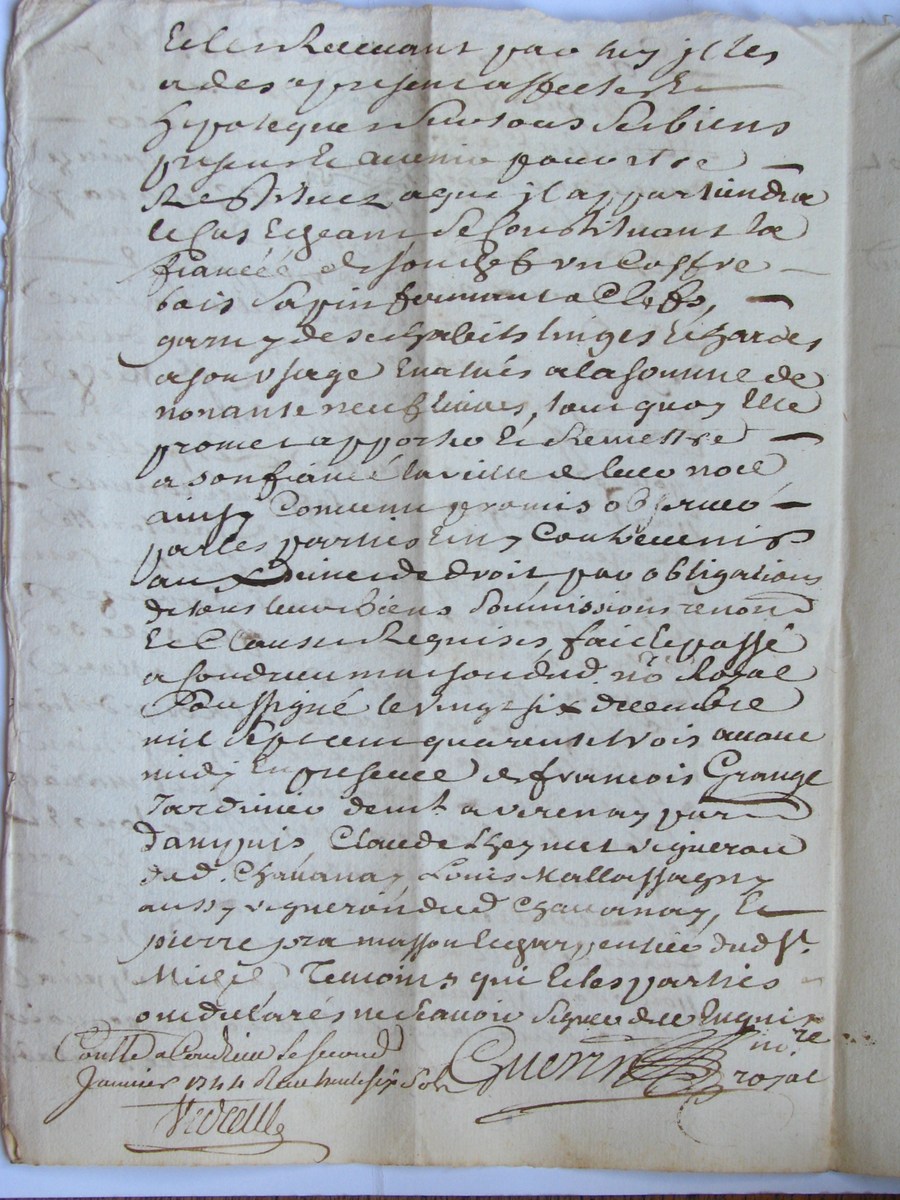 Et les Recevant par luy jl les
a des a present affecte et
hypoteque sur tous ses biens
presents et avenir pour etre
Restitues a qui jl appartiendra
le Cas Echeant Se Constituant la
fiancéé de son chef un Coffre
bois Sapin fermant a Clefs,
garny de ses habits linges Et hardes
a son usage Evalués a la somme de
nonante neuf livres, tout quoy Elle
promet apporter Et Remettre
a son fiancé la veille de leur noce
ainsy Convenu promis observer
par les parties Eiy Contrevenir
aux Peines de droit, par obligations
de tous leurs Biens Soumissions renon
Et Clauses Requises, fait et passé
a Condrieu maison dud. no Royal
Soussigné le vingt six decembre
mil sept cent quarente trois avant
midy En presence de francois Grange
Jardinier demt. a verenay parr
dampuis, Claude Cheynet vigneron
dud. Chavanay, Louis Mallassagny
aussy vigneron dud Chavanay, Et
pierre pra masson Echarpentier dud St.
Michel Temoins qui Et les parties
ont declarés ne scavoir Signer de ce Enquis
Conlle a Condrieu le second
Janvier 1744 Recu trente six sols
Guerin no.re
royal